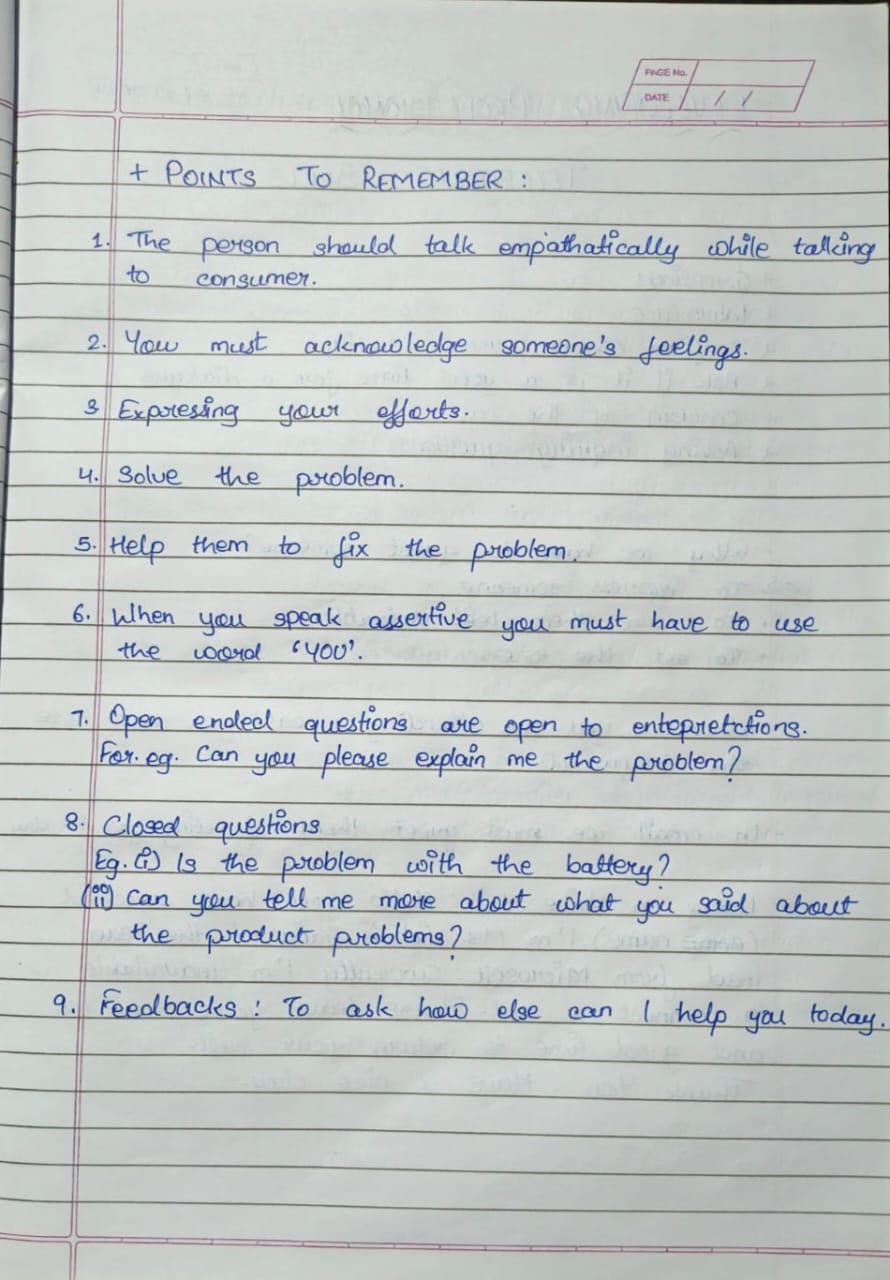 PAGE No.
DATE / /
+ POINTS TO REMEMBER :
1. The person should talk empathatically while talking
to consumer.
2. You must acknowledge someone's feelings.
3 Expressing your efforts.
4. Solve the problem.
5. Help them to fix the problem.
6. When you speak assertive you must have to use
the word 'YOU'.
7. Open ended questions are open to entepretctions.
For. eg. Can you please explain me the problem?
8. Closed questions
Eg. (i) Is the problem with the battery?
(ii) Can you tell me more about what you said about
the product problems?
9. Feedbacks : To ask how else can I help you today.